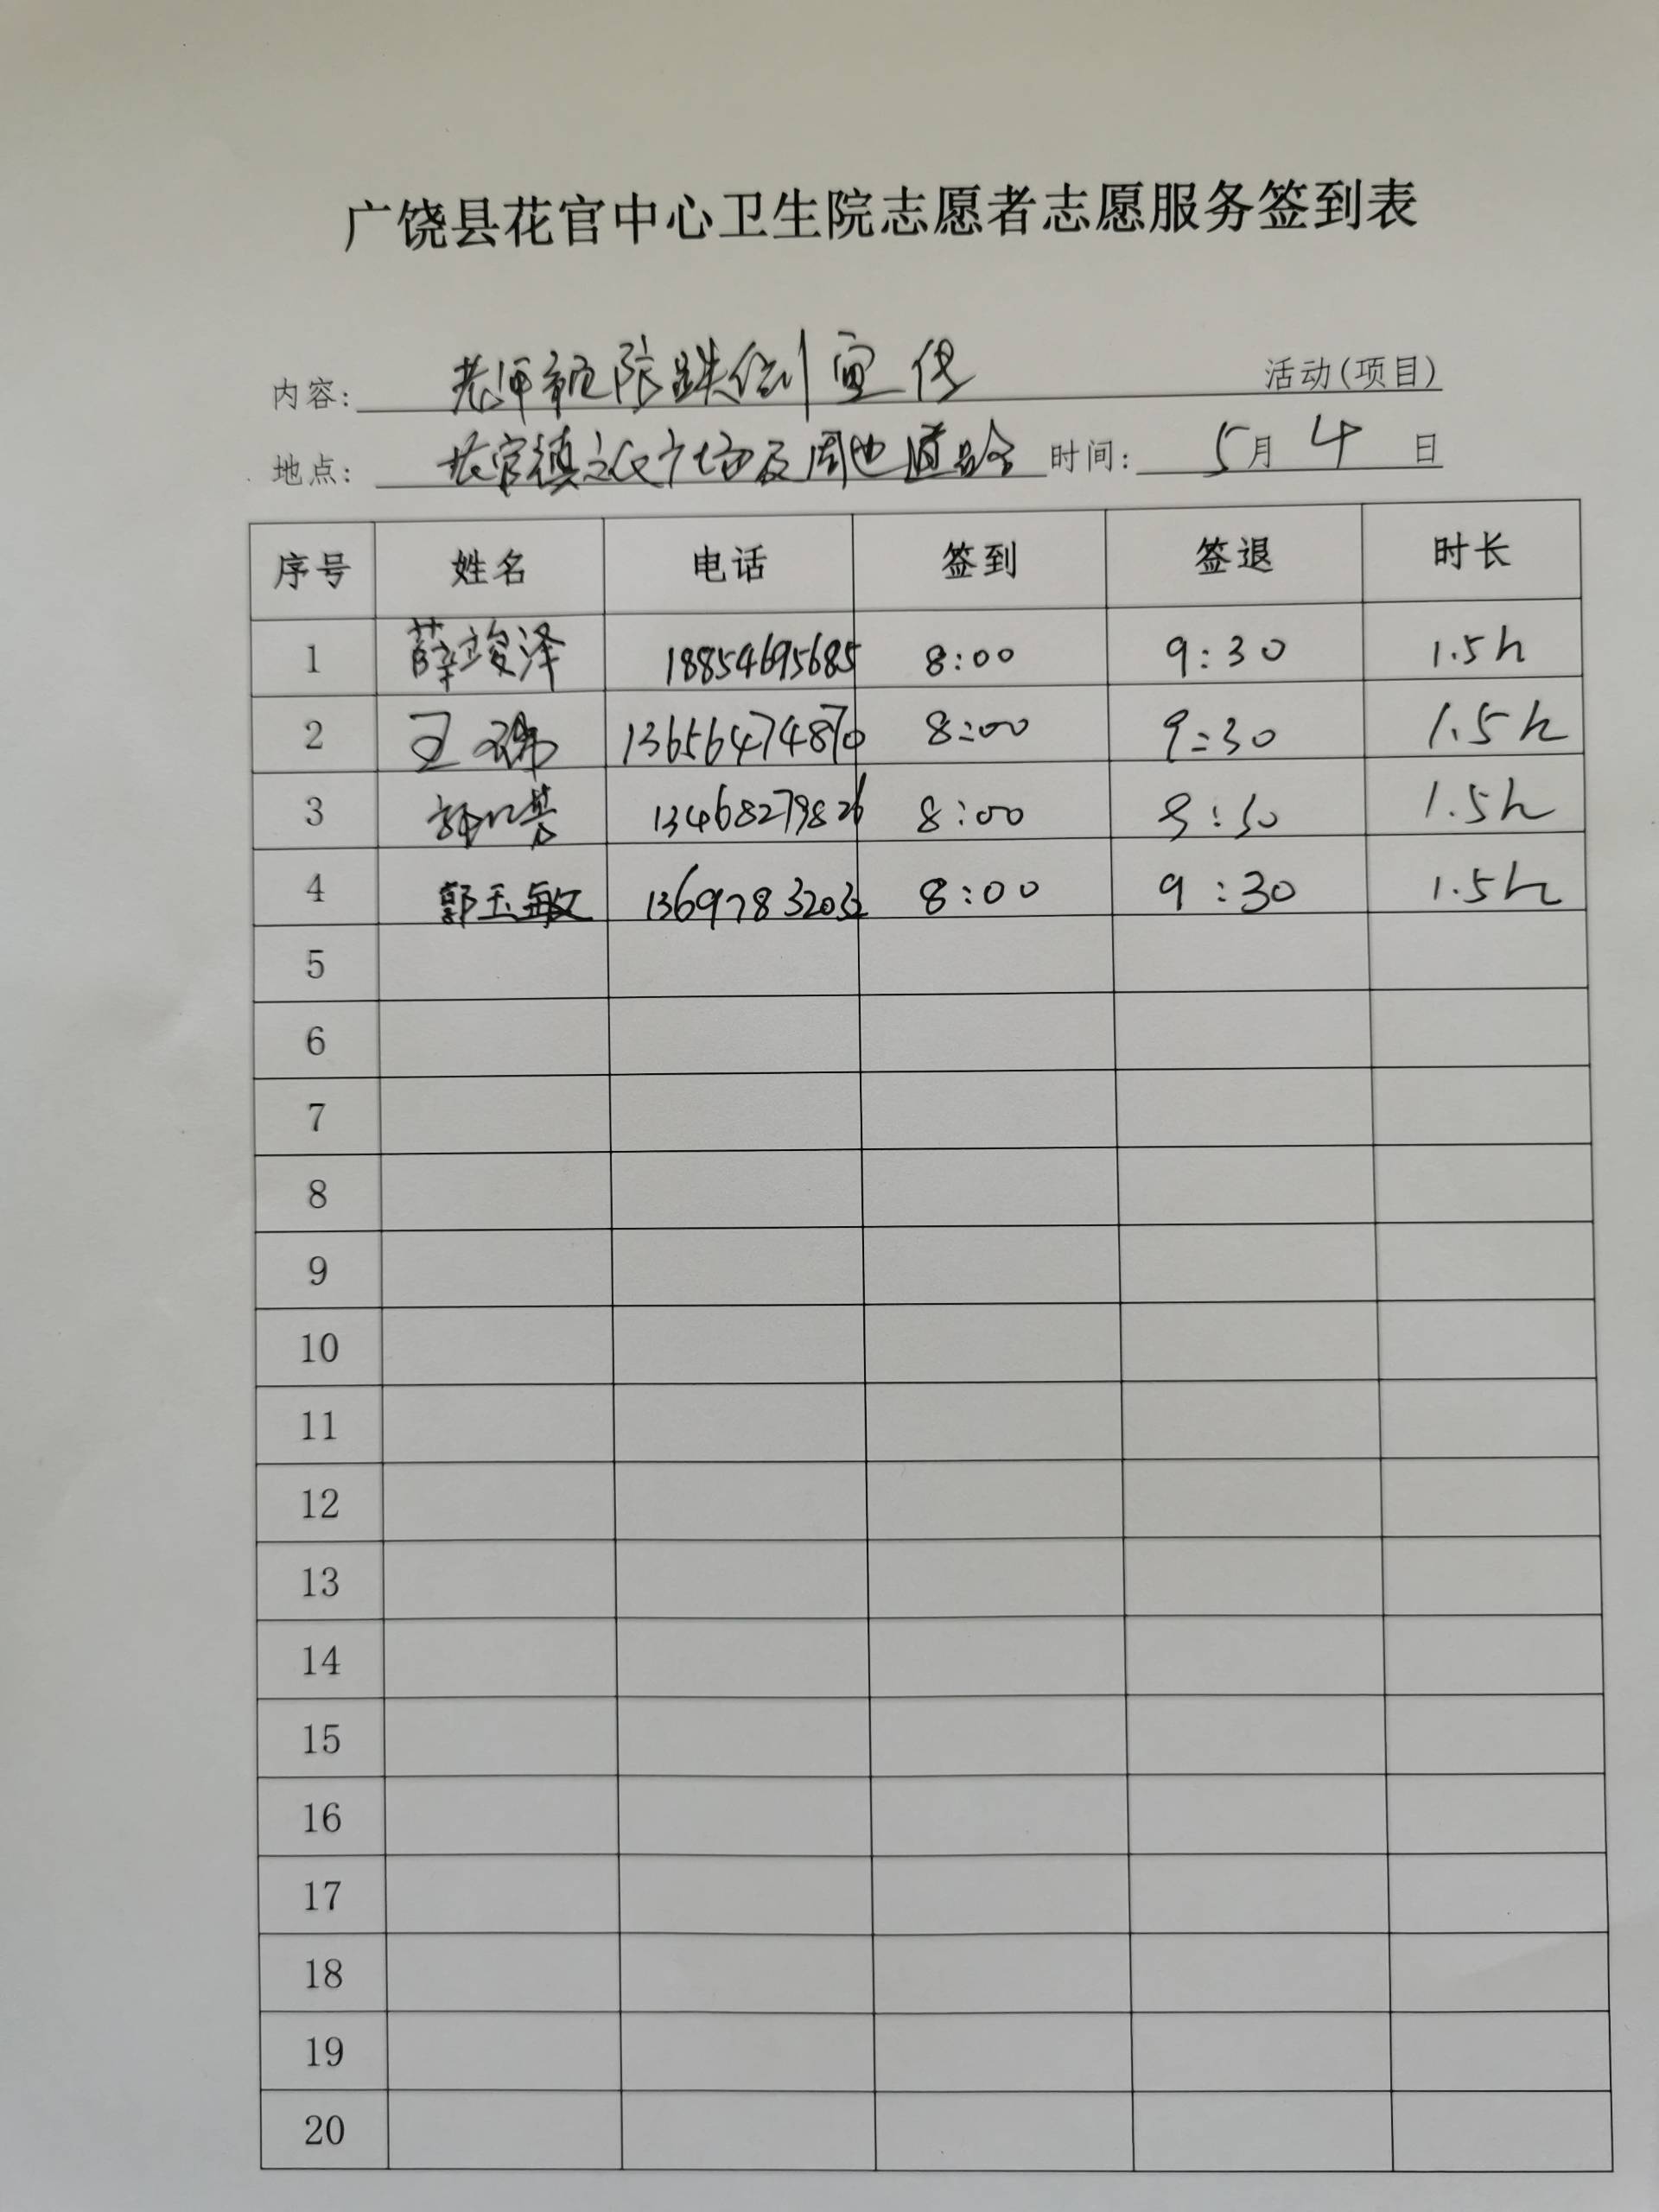 广饶县花官中心卫生院志愿者志愿服务签到表
内容: 宣传 活动(项目)
地点: 花官镇文化广场及周边道路 时间: 5月4日
序号 姓名 电话 签到 签退 时长
1 薛竣泽 18854695685 8:00 9:30 1.5h
2 王 13656474870 8:00 9:30 1.5h
3 13468279826 8:00 9:30 1.5h
4 郭玉敏 13697832032 8:00 9:30 1.5h
5
6
7
8
9
10
11
12
13
14
15
16
17
18
19
20